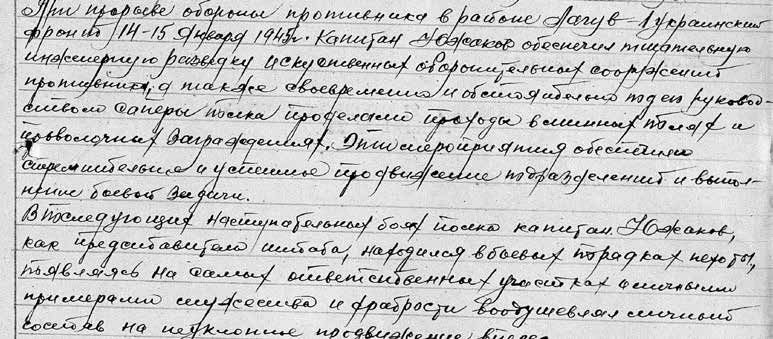 При прорыве обороны противника в районе Лагув-1 украинский
фронт 14-15 января 1945г. Капитан Южаков обеспечил тщательную
инженерную разведку искуственных оборонительных сооружений
противника, а также своевременно и обстоятельно под его руковод-
ством саперы полка проделали проходы в минных полях и
проволочных заграждениях. Эти мероприятия обеспечили
стремительное и успешное продвижение подразделений и выпол-
нение боевой задачи.
В последующих наступательных боях полка капитан Южаков,
как представитель штаба, находился в боевых порядках пехоты,
появляясь на самых ответственных участках и личными
примерами мужества и храбрости воодушевлял личный
состав на неуклонное продвижение вперед